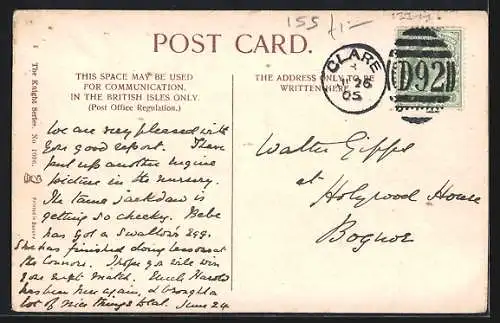 155 1/-
POST CARD.
THIS SPACE MAY BE USED
FOR COMMUNICATION,
IN THE BRITISH ISLES ONLY.
(Post Office Regulation.)
THE ADDRESS ONLY TO BE
WRITTEN HERE.
CLARE
JU 26
05
D92
The Knight Series. No
We are very pleased with
your good report. I have
put up another engine
picture in the nursery.
The tame jackdaw is
getting so cheeky. Bebe
has got a Swallow's egg.
She has finished doing lessons at
the Connors. I hope you will win
your next match. Uncle Harold
has been here again, & brought a
lot of nice things & tea. June 24
Walter Gipps
at Holyrood House
Bognor